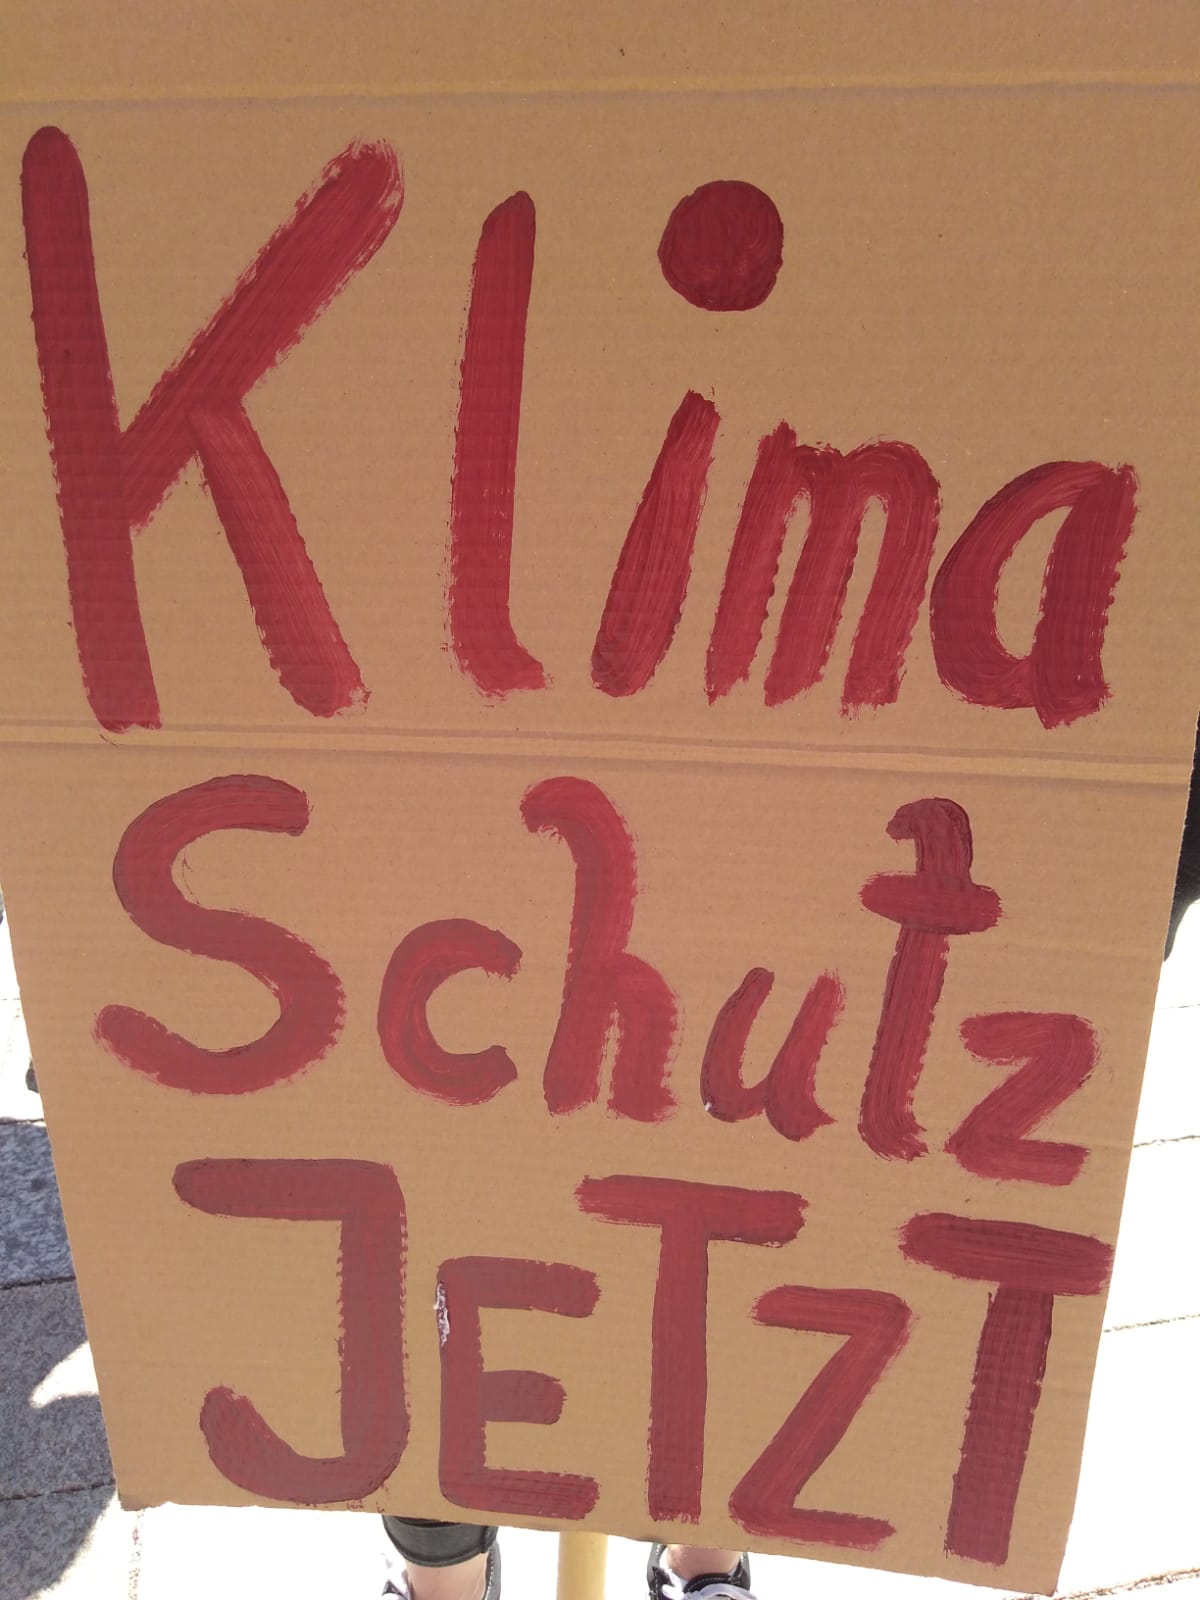 Klima
Schutz
JETZT